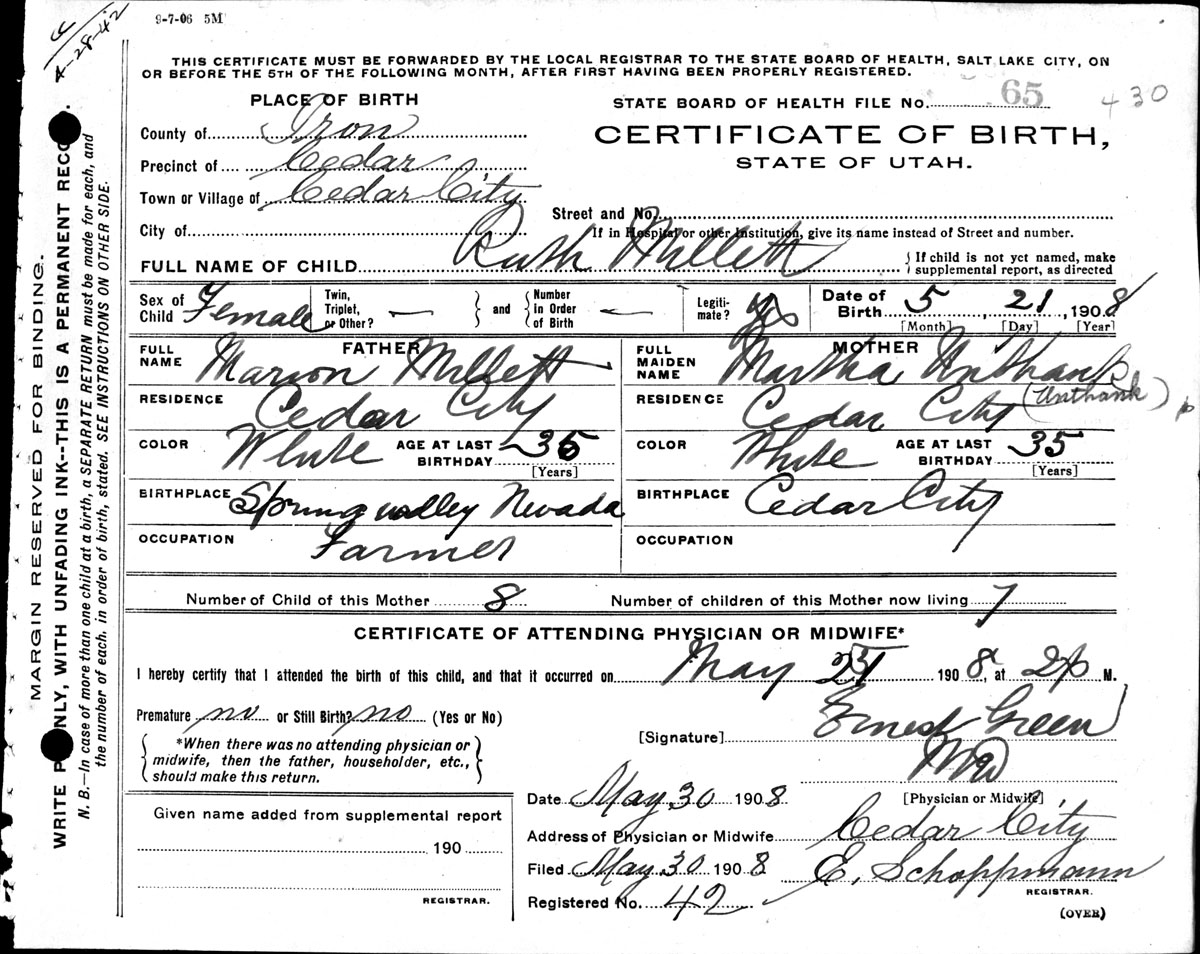 4-28-42
9-7-06 5M
THIS CERTIFICATE MUST BE FORWARDED BY THE LOCAL REGISTRAR TO THE STATE BOARD OF HEALTH, SALT LAKE CITY, ON
OR BEFORE THE 5TH OF THE FOLLOWING MONTH, AFTER FIRST HAVING BEEN PROPERLY REGISTERED.
PLACE OF BIRTH
STATE BOARD OF HEALTH FILE No. 65 430
County of Iron
CERTIFICATE OF BIRTH,
Precinct of Cedar
STATE OF UTAH.
Town or Village of Cedar City
Street and No.
City of
If in Hospital or other Institution, give its name instead of Street and number.
FULL NAME OF CHILD Ruth Millett
If child is not yet named, make
supplemental report, as directed
Sex of Child Female Twin, Triplet, or Other? — and Number in Order of Birth — Legiti-mate? Yes Date of Birth 5, 21, 1908
[Month] [Day] [Year]
FATHER
FULL NAME Marion Millett
RESIDENCE Cedar City
COLOR White AGE AT LAST BIRTHDAY 35
[Years]
BIRTHPLACE Spring valley Nevada
OCCUPATION Farmer
MOTHER
FULL MAIDEN NAME Martha Unthank
RESIDENCE Cedar City (Unthank)
COLOR White AGE AT LAST BIRTHDAY 35
[Years]
BIRTHPLACE Cedar City
OCCUPATION
Number of Child of this Mother 8 Number of children of this Mother now living 7
CERTIFICATE OF ATTENDING PHYSICIAN OR MIDWIFE*
I hereby certify that I attended the birth of this child, and that it occurred on May 21 1908, at 2 p M.
Premature no or Still Birth? no (Yes or No)
[Signature] Ernest Green
*When there was no attending physician or
midwife, then the father, householder, etc.,
should make this return.
MD
[Physician or Midwife]
Date May 30 1908
Given name added from supplemental report
190
REGISTRAR.
Address of Physician or Midwife Cedar City
Filed May 30 1908 E. Schoppmann
REGISTRAR.
Registered No. 42
(OVER)
MARGIN RESERVED FOR BINDING.
WRITE P ONLY, WITH UNFADING INK--THIS IS A PERMANENT RECO
N. B.—In case of more than one child at a birth, a SEPARATE RETURN must be made for each, and
the number of each, in order of birth, stated. SEE INSTRUCTIONS ON OTHER SIDE.